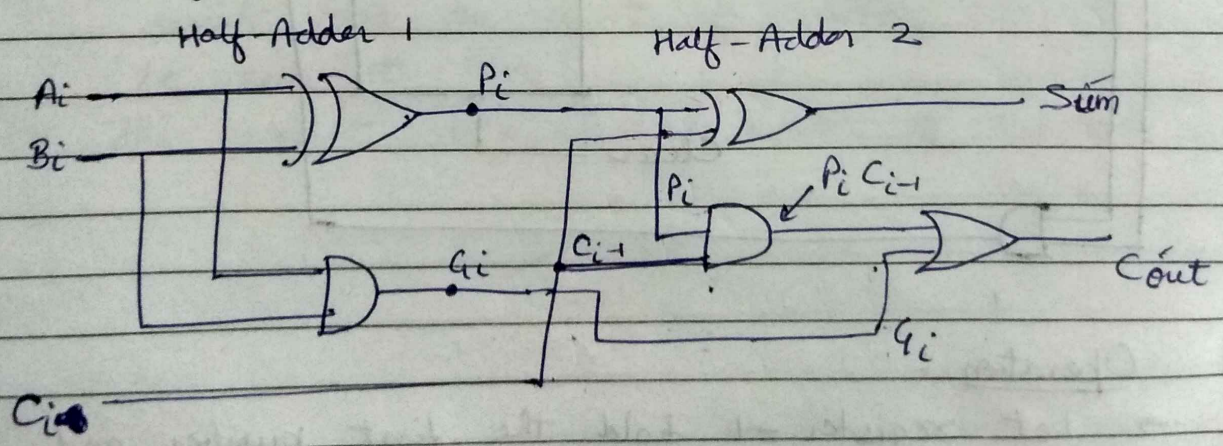 Half-Adder 1
Half-Adder 2
Ai
Pi
Sum
Bi
Pi
Pi Ci-1
Ci-1
Gi
Cout
Gi
Ci